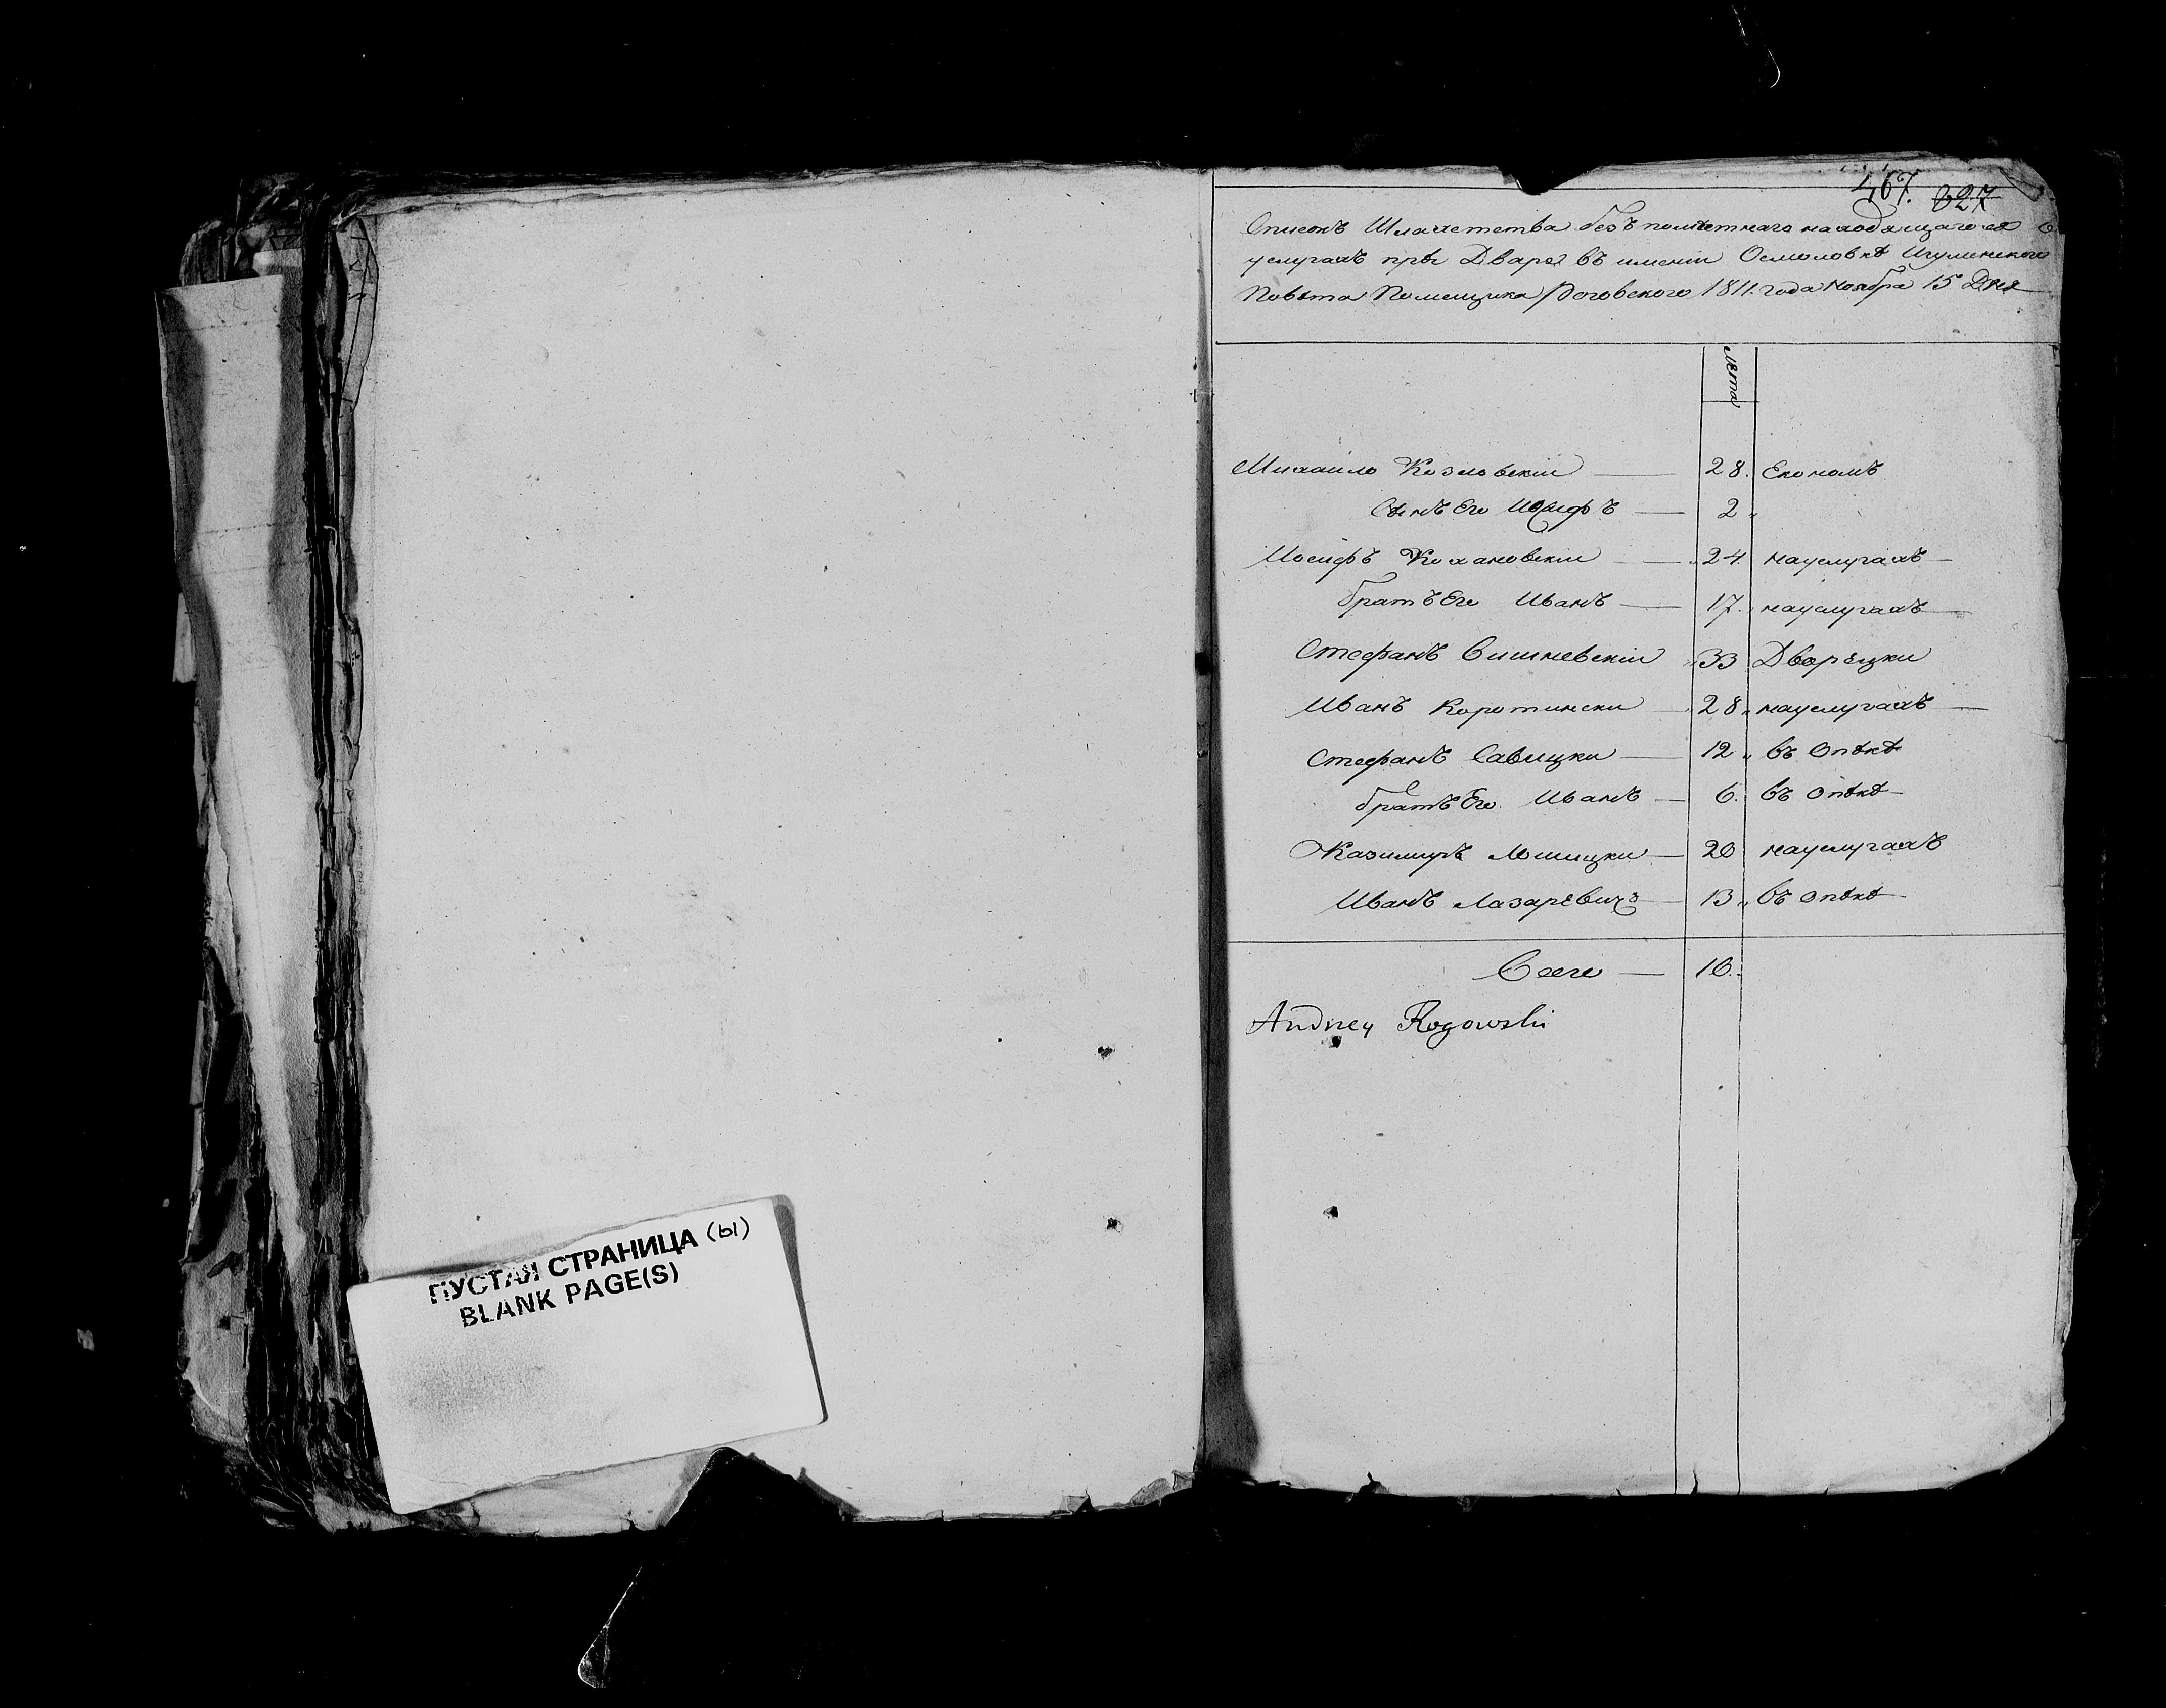 467. 827
Списокъ Шляхетства безъ поместнаго находящагося в
услугахъ при Дваре въ имении Осмоловкѣ Игуменского
Повѣта Помещика Роговского 1811. года Ноября 15 Дня
Лѣта
Михайло Козловскiи — 28. Економъ
Сынъ Его Иосифъ — 2
Иосифъ Кохановскiи — 24. на услугахъ —
братъ Его Иванъ — 17. на услугахъ —
Стефанъ Вишневскiи 33 Дворецки
Иванъ Коротински 28 на услугахъ —
Стефанъ Савицки — 12 въ Опѣкѣ
братъ Его Иванъ — 6. въ Опѣкѣ
Казимиръ Лошицки — 20 на услугахъ
Иванъ Лазаревичъ — 13 въ Опѣкѣ
Всего — 10.
Andrzey Rogowski
ПУСТАЯ СТРАНИЦА (Ы)
BLANK PAGE(S)